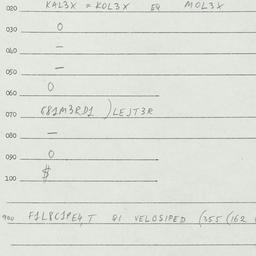 020 KAL3X = KOL3X E4 MOL3X
030 O
040 –
050 –
060 O
070 681M3RD1 ) LEJT3R
080 –
090 O
100 $
900 F1L8C1PE4, T 81 VELOSIPED (355 (162